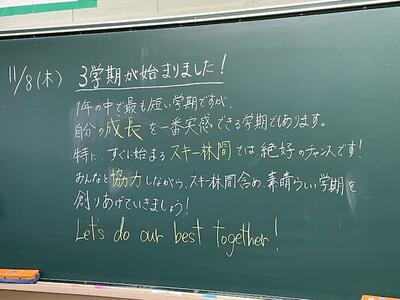 11/8(木) 3学期が始まりました!
1年の中で最も短い学期ですが、
自分の成長を一番実感できる学期でもあります。
特に、すぐに始まるスキー林間では絶好のチャンスです!
みんなと協力しながら、スキー林間含め、素晴らしい学期を
創りあげていきましょう!
Let's do our best together!